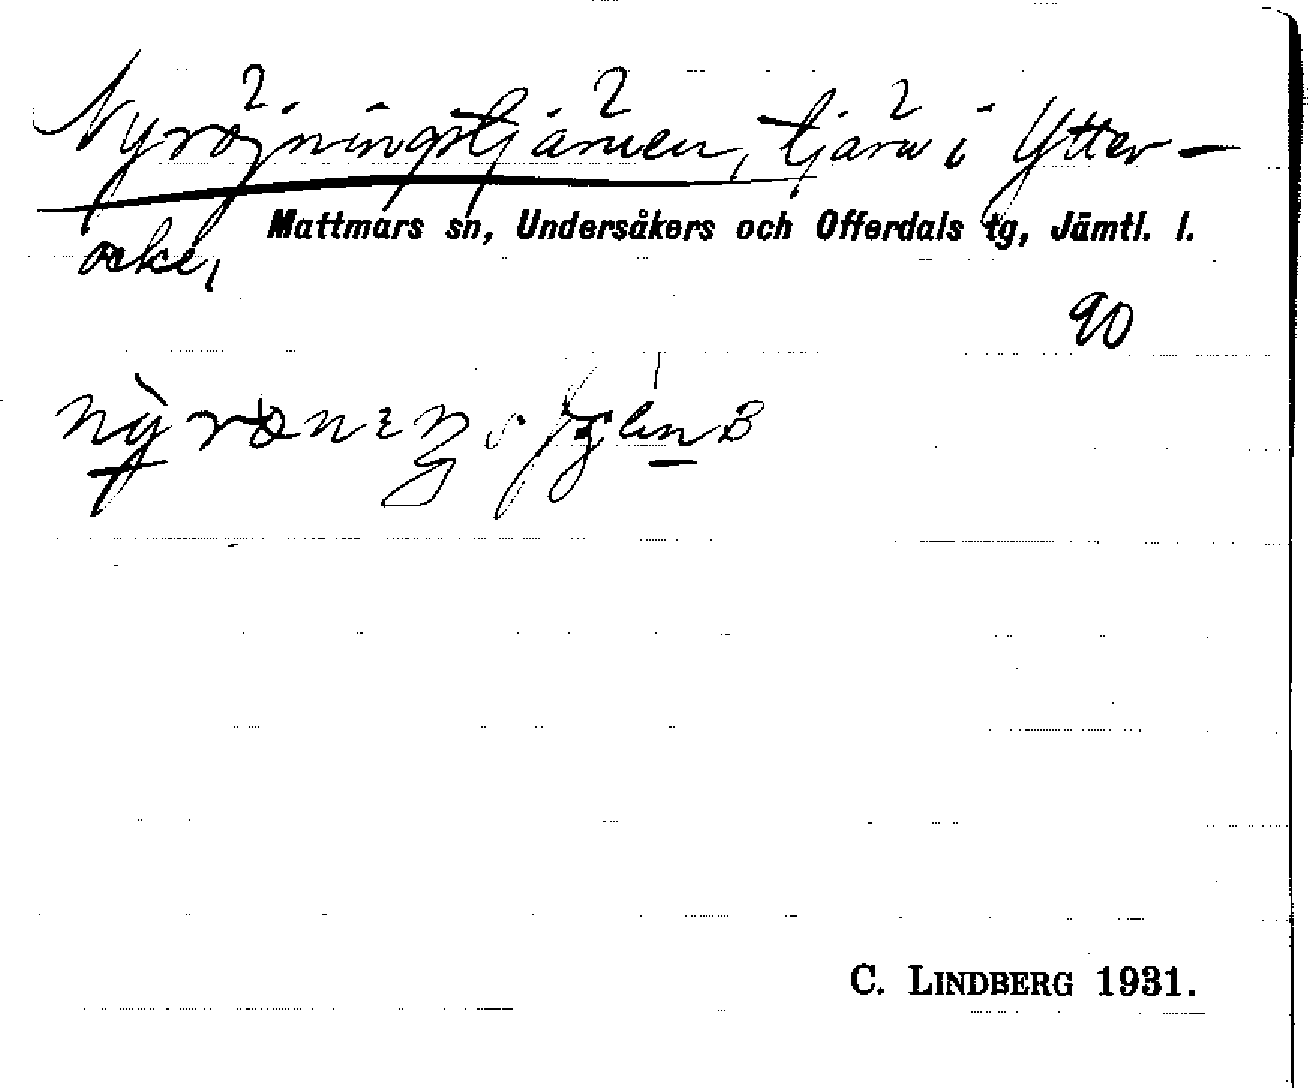 Nyröjningstjärnen, tjärn i Ytter-
Mattmars sn, Undersåkers och Offerdals tg, Jämtl. l.
ocke,
90
C. LINDBERG 1931.